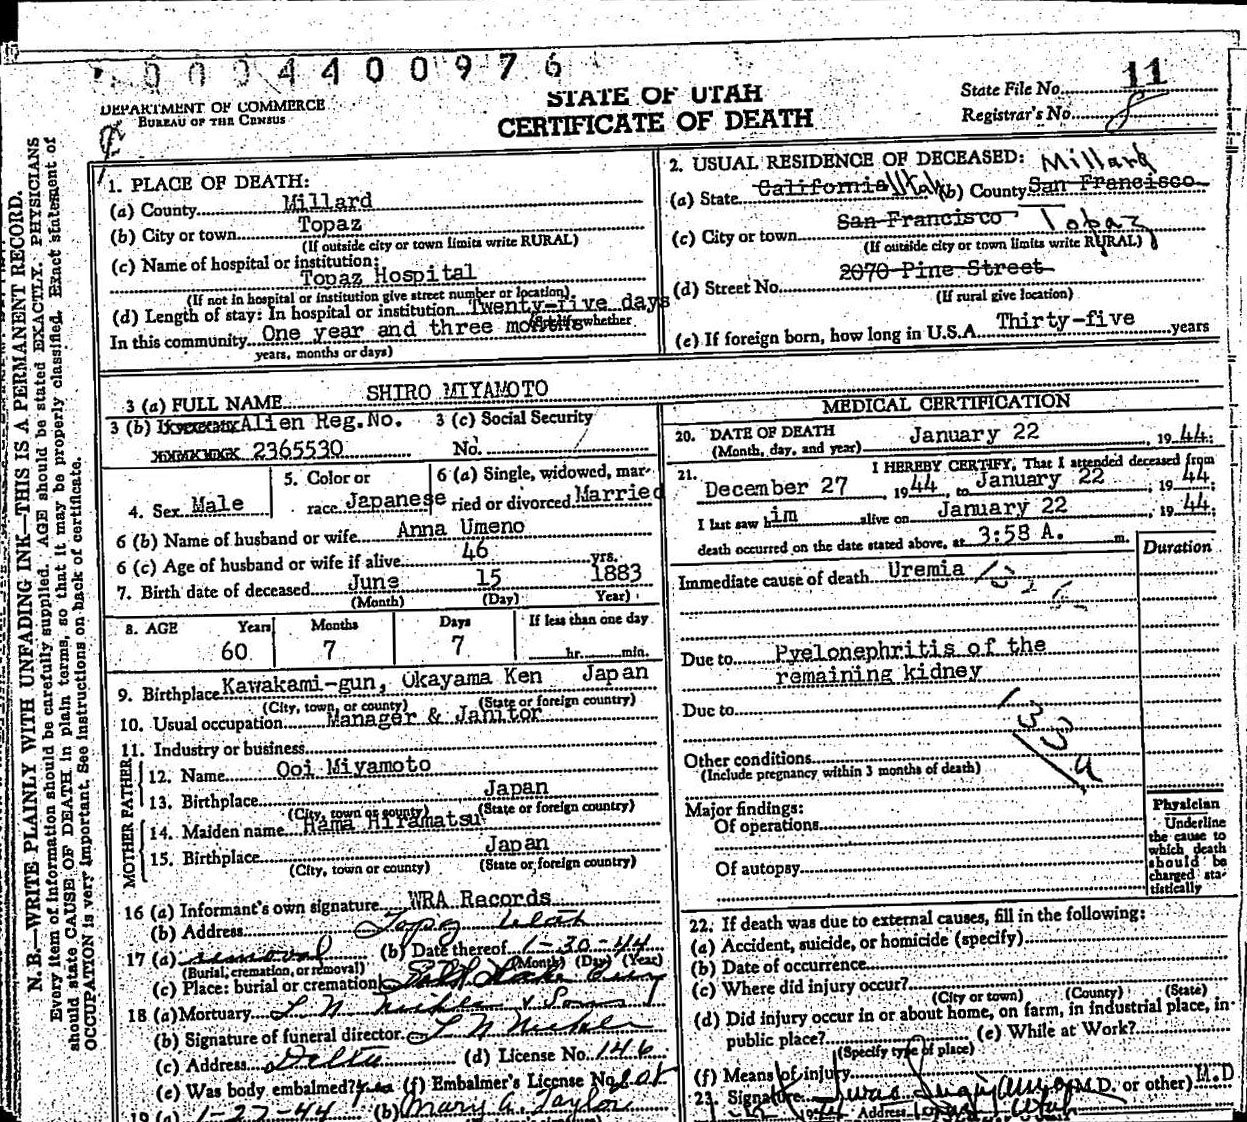 0004400976
DEPARTMENT OF COMMERCE
BUREAU OF THE CENSUS
STATE OF UTAH
CERTIFICATE OF DEATH
State File No. 11
Registrar's No. 8
N. B.—WRITE PLAINLY WITH UNFADING INK—THIS IS A PERMANENT RECORD.
Every item of information should be carefully supplied. AGE should be stated EXACTLY. PHYSICIANS
should state CAUSE OF DEATH in plain terms, so that it may be properly classified. Exact statement of
OCCUPATION is very important. See instructions on back of certificate.
1. PLACE OF DEATH:
(a) County Millard
(b) City or town Topaz
(If outside city or town limits write RURAL)
(c) Name of hospital or institution:
Topaz Hospital
(If not in hospital or institution give street number or location)
(d) Length of stay: In hospital or institution Twenty-five days
(Specify whether
In this community One year and three months
years, months or days)
2. USUAL RESIDENCE OF DECEASED: Millard
(a) State California Utah (b) County San Francisco
(c) City or town San Francisco Topaz
(If outside city or town limits write RURAL)
(d) Street No. 2070 Pine Street
(If rural give location)
(e) If foreign born, how long in U.S.A. Thirty-five years
3 (a) FULL NAME SHIRO MIYAMOTO
3 (b) Alien Reg.No. 2365530
3 (c) Social Security
No.
4. Sex Male
5. Color or
race Japanese
6 (a) Single, widowed, mar-
ried or divorced Married
6 (b) Name of husband or wife Anna Umeno
6 (c) Age of husband or wife if alive 46 yrs.
7. Birth date of deceased June 15 1883
(Month) (Day) Year)
8. AGE Years Months Days If less than one day
60 7 7 hr. min.
9. Birthplace Kawakami-gun, Okayama Ken Japan
(City, town, or county) (State or foreign country)
10. Usual occupation Manager & Janitor
11. Industry or business
FATHER
12. Name Ooi Miyamoto
13. Birthplace Japan
(City, town or county) (State or foreign country)
MOTHER
14. Maiden name Hama Hiramatsu
15. Birthplace Japan
(City, town or county) (State or foreign country)
16 (a) Informant's own signature WRA Records
(b) Address Topaz Utah
17 (a) removal (b) Date thereof 1-30-44
(Burial, cremation, or removal) (Month) (Day) (Year)
(c) Place: burial or cremation Salt Lake City
18 (a) Mortuary
(b) Signature of funeral director
(c) Address Delta (d) License No. 146
(e) Was body embalmed? yes (f) Embalmer's License No. 208
19 (a) 1-27-44 (b) Mary A. Taylor
MEDICAL CERTIFICATION
20. DATE OF DEATH January 22, 1944;
(Month, day, and year)
21. I HEREBY CERTIFY, That I attended deceased from
December 27, 1944, to January 22, 1944;
I last saw him alive on January 22, 1944;
death occurred on the date stated above, at 3:58 A. m.
Duration
Immediate cause of death Uremia
Due to Pyelonephritis of the
remaining kidney
Due to
Other conditions
(Include pregnancy within 3 months of death)
Major findings:
Of operations
Of autopsy
Physician
Underline
the cause to
which death
should be
charged sta-
tistically
22. If death was due to external causes, fill in the following:
(a) Accident, suicide, or homicide (specify)
(b) Date of occurrence
(c) Where did injury occur?
(City or town) (County) (State)
(d) Did injury occur in or about home, on farm, in industrial place, in
public place? (e) While at Work?
(Specify type of place)
(f) Means of injury
23. Signature (M.D. or other) M.D
Address Topaz, Utah